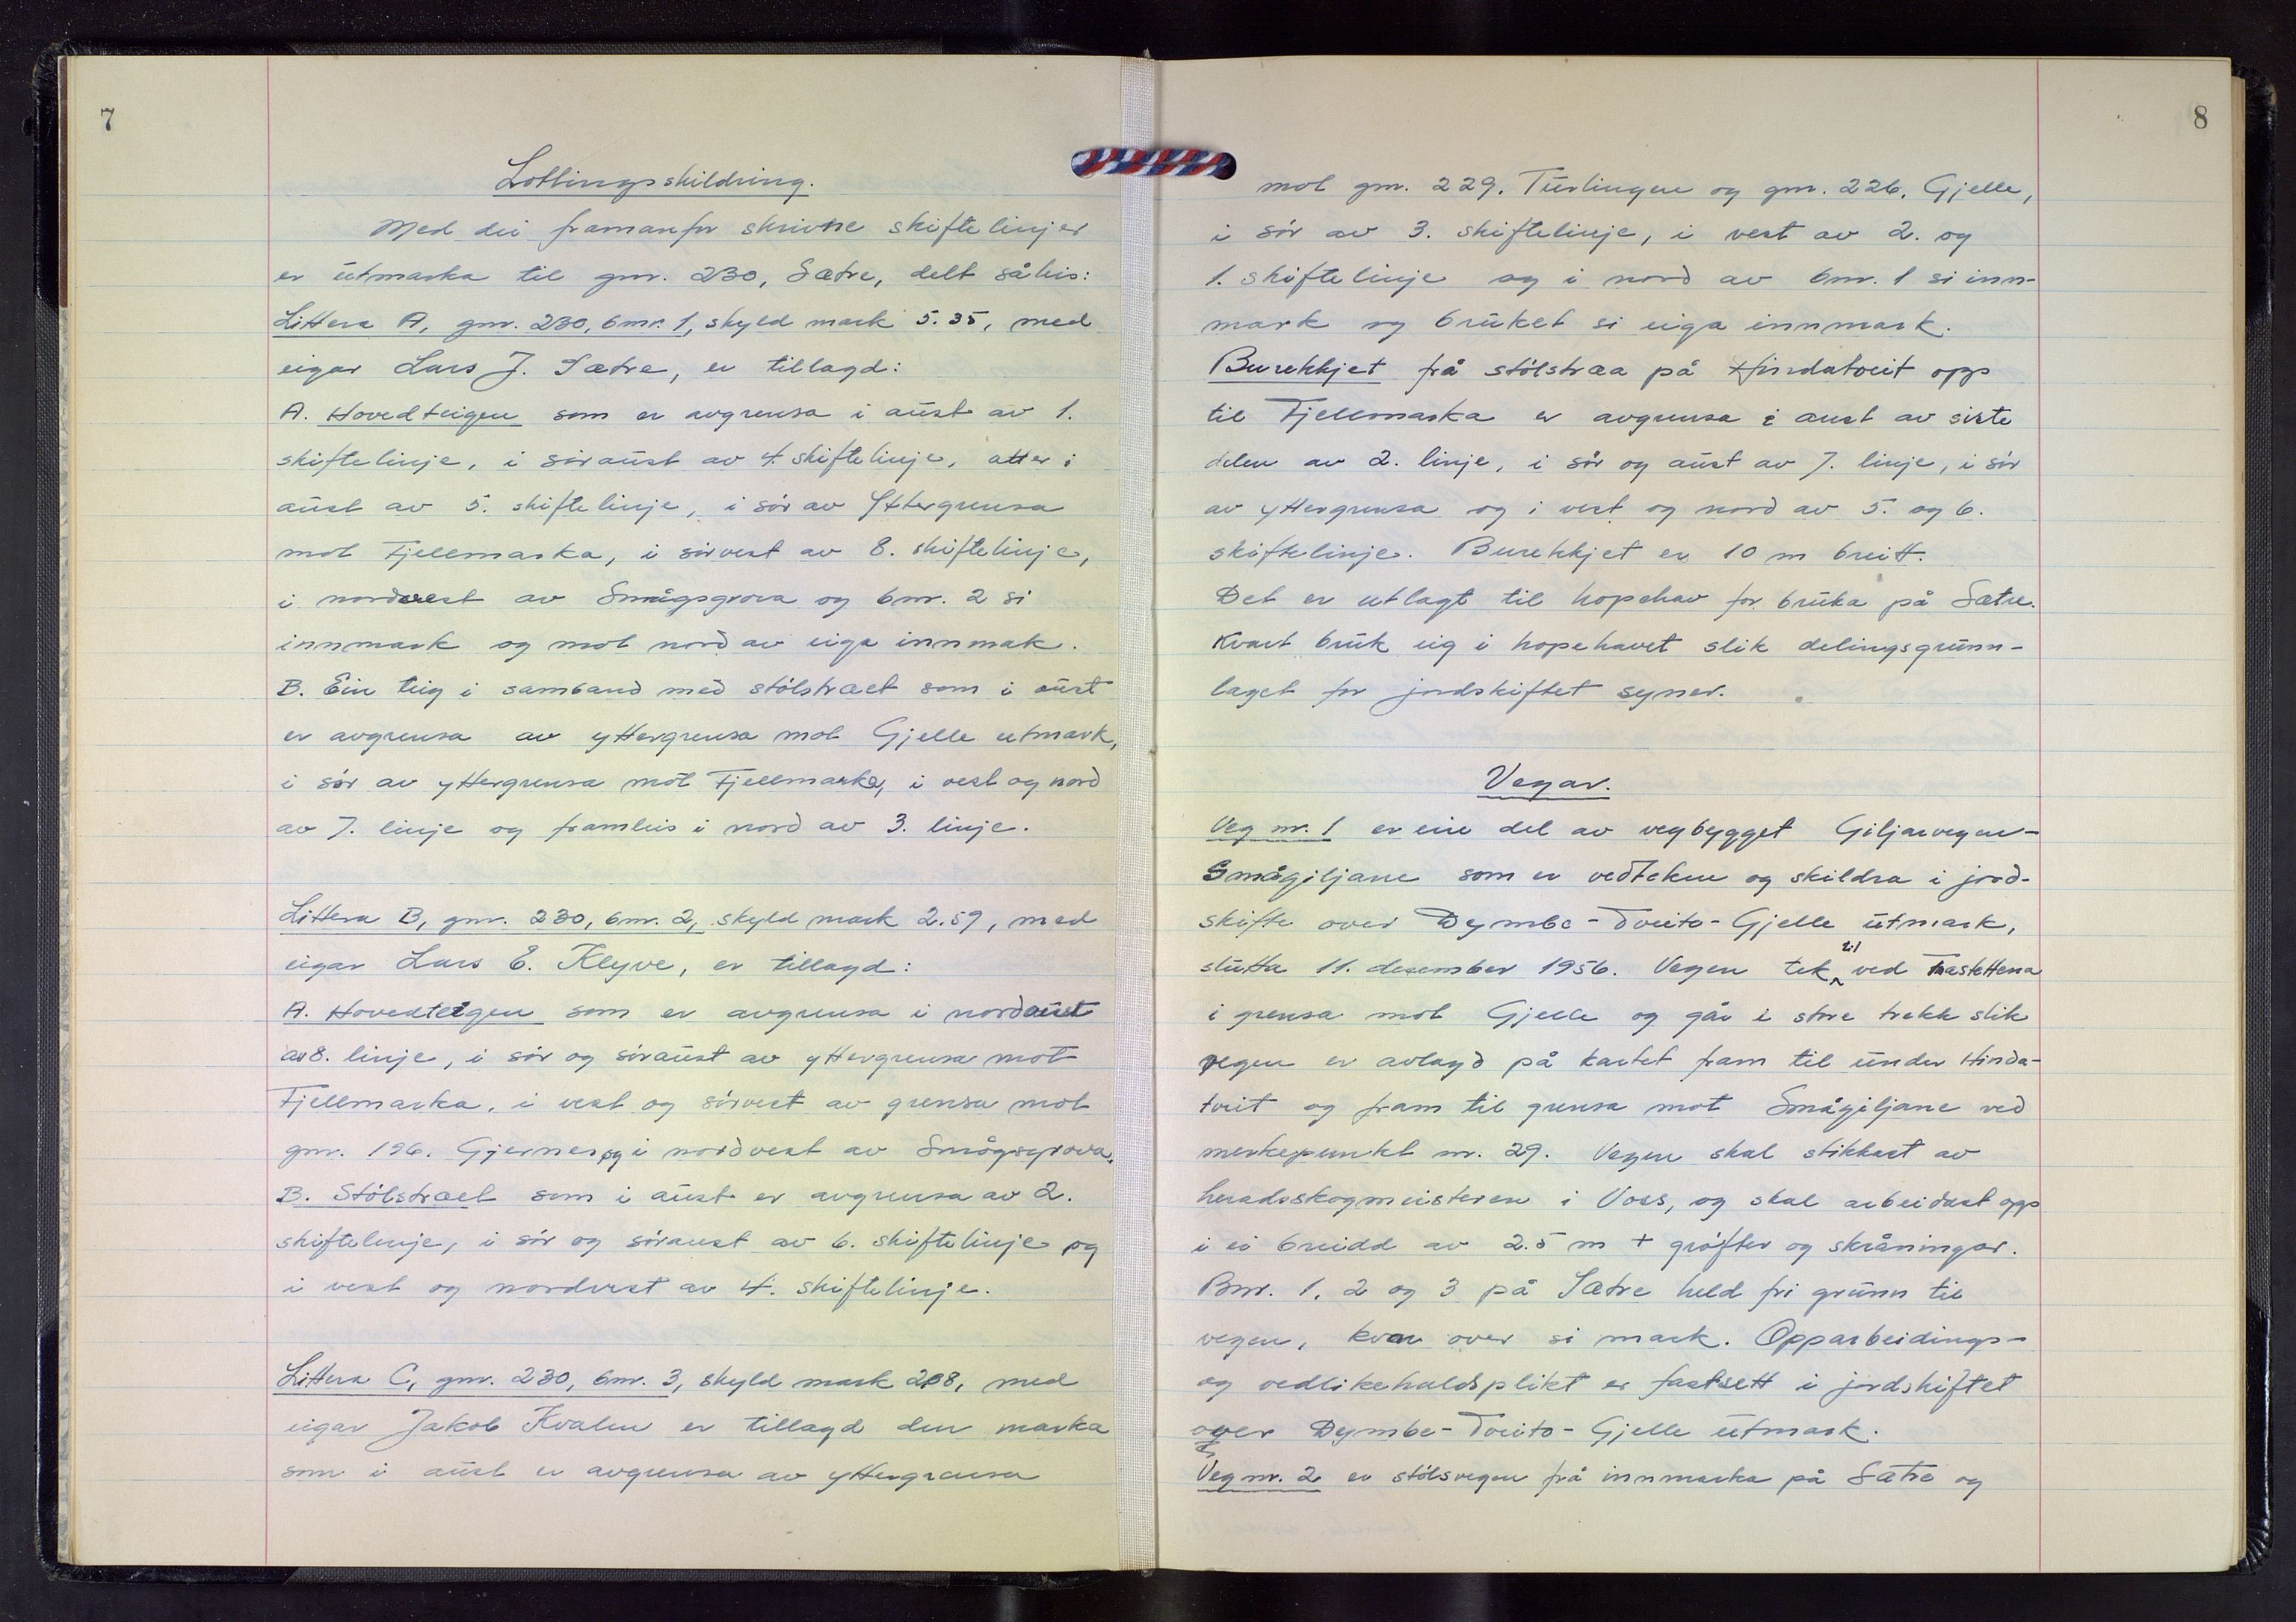 7
Lottingsskildring.
Med dei framanfor skrivne skiftelinjer
er utmarka til gnr. 230, Sætre, delt såleis:
Littera A, gnr. 230, bnr. 1, skyld mark 5.35, med
eigar Lars J. Sætre, er tillagd:
A. Hovedteigen som er avgrensa i aust av 1.
skiftelinje, i søraust av 4. skiftelinje, atter i
aust av 5. skiftelinje, i sør av Yttergrensa
mot Fjellmarka, i sørvest av 8. skiftelinje,
i nordvest av Smågsgrova og bnr. 2 si
innmark og mot nord av eiga innmak.
B. Ein teig i samband med stølstræet som i aust
er avgrensa av yttergrensa mot Gjelle utmark,
i sør av yttergrensa mot Fjellmarka, i vest og nord
av 7. linje og framleis i nord av 3. linje.
Littera B, gnr. 230, bnr. 2, skyld mark 2.59, med
eigar Lars E. Klyve, er tillagd:
A. Hovedteigen som er avgrensa i nordaust
av 8. linje, i sør og søraust av yttergrensa mot
Fjellmarka, i vest og sørvest av grensa mot
gnr. 196. Gjernes og i nordvest av Smågsgrova.
B. Stølstræet som i aust er avgrensa av 2.
skiftelinje, i sør og søraust av 6. skiftelinje og
i vest og nordvest av 4. skiftelinje.
Littera C, gnr. 230, bnr. 3, skyld mark 2.08, med
eigar Jakob Kvalen er tillagd den marka
som i aust er avgrensa av yttergrensa
8
mot gnr. 229. Turlingen og gnr. 226, Gjelle,
i sør av 3. skiftelinje, i vest av 2. og
1. skiftelinje og i nord av bnr. 1 si inn-
mark og bruket si eiga innmark.
Burekkjet frå stølstræa på Hindatveit opp
til Fjellmarka er avgrensa i aust av siste
delen av 2. linje, i sør og aust av 7. linje, i sør
av yttergrensa og i vest og nord av 5. og 6.
skiftelinje. Burekkjet er 10 m breitt.
Det er utlagt til hopehav for bruka på Sætre.
Kvart bruk eig i hopehavet slik delingsgrunn-
laget for jordskiftet syner.
Vegar.
Veg nr. 1 er ein del av vegbygget Giljarvegen-
Smågiljane som er vedteken og skildra i jord-
skifte over Dymbe-Tveito-Gjelle utmark,
slutta 11. desember 1956. Vegen tek til ved Trastettena
i grensa mot Gjelle og går i store trekk slik
vegen er avlagd på kartet fram til under Hinda-
tveit og fram til grensa mot Smågiljane ved
merkepunkt nr. 29. Vegen skal stikkast av
heradsskogmeisteren i Voss, og skal arbeidast opp
i ei breidd av 2.5 m + grøfter og skråningar.
Bnr. 1, 2 og 3 på Sætre held fri grunn til
vegen, kvar over si mark. Opparbeidings-
og vedlikehaldsplikt er fastsett i jordskiftet
over Dymbe-Tveito-Gjelle utmark.
Veg nr. 2 er stølsvegen frå innmarka på Sætre og